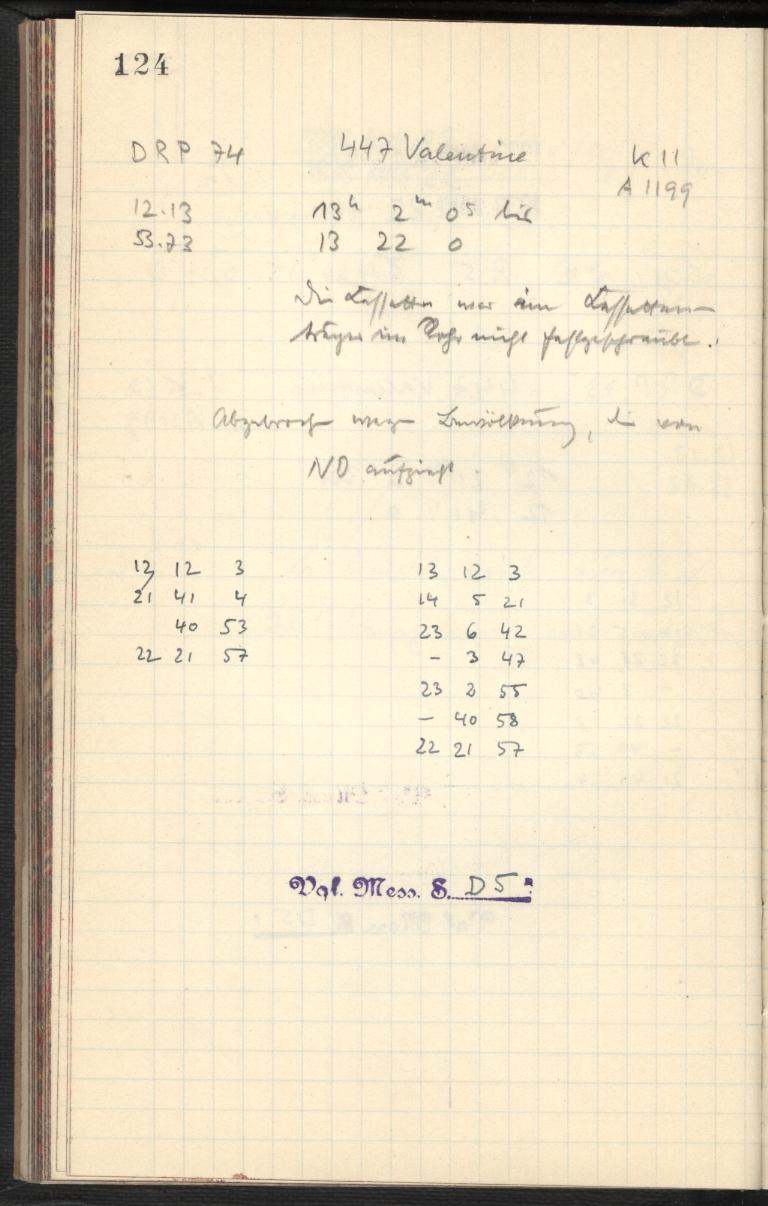 124
DRP 74 447 Valentine K 11
A 1199
12.13 13h 2m 0s bis
53.73 13 22 0
Die Kassette war im Kassetten-
träger im Rohr nicht festgeschraubt.
Abgebroch wege Bewölkung, die von
NO aufzieht
12 12 3
21 41 4
40 53
22 21 57
13 12 3
14 5 21
23 6 42
- 3 47
23 2 55
- 40 58
22 21 57
Vgl. Mess. S. D5